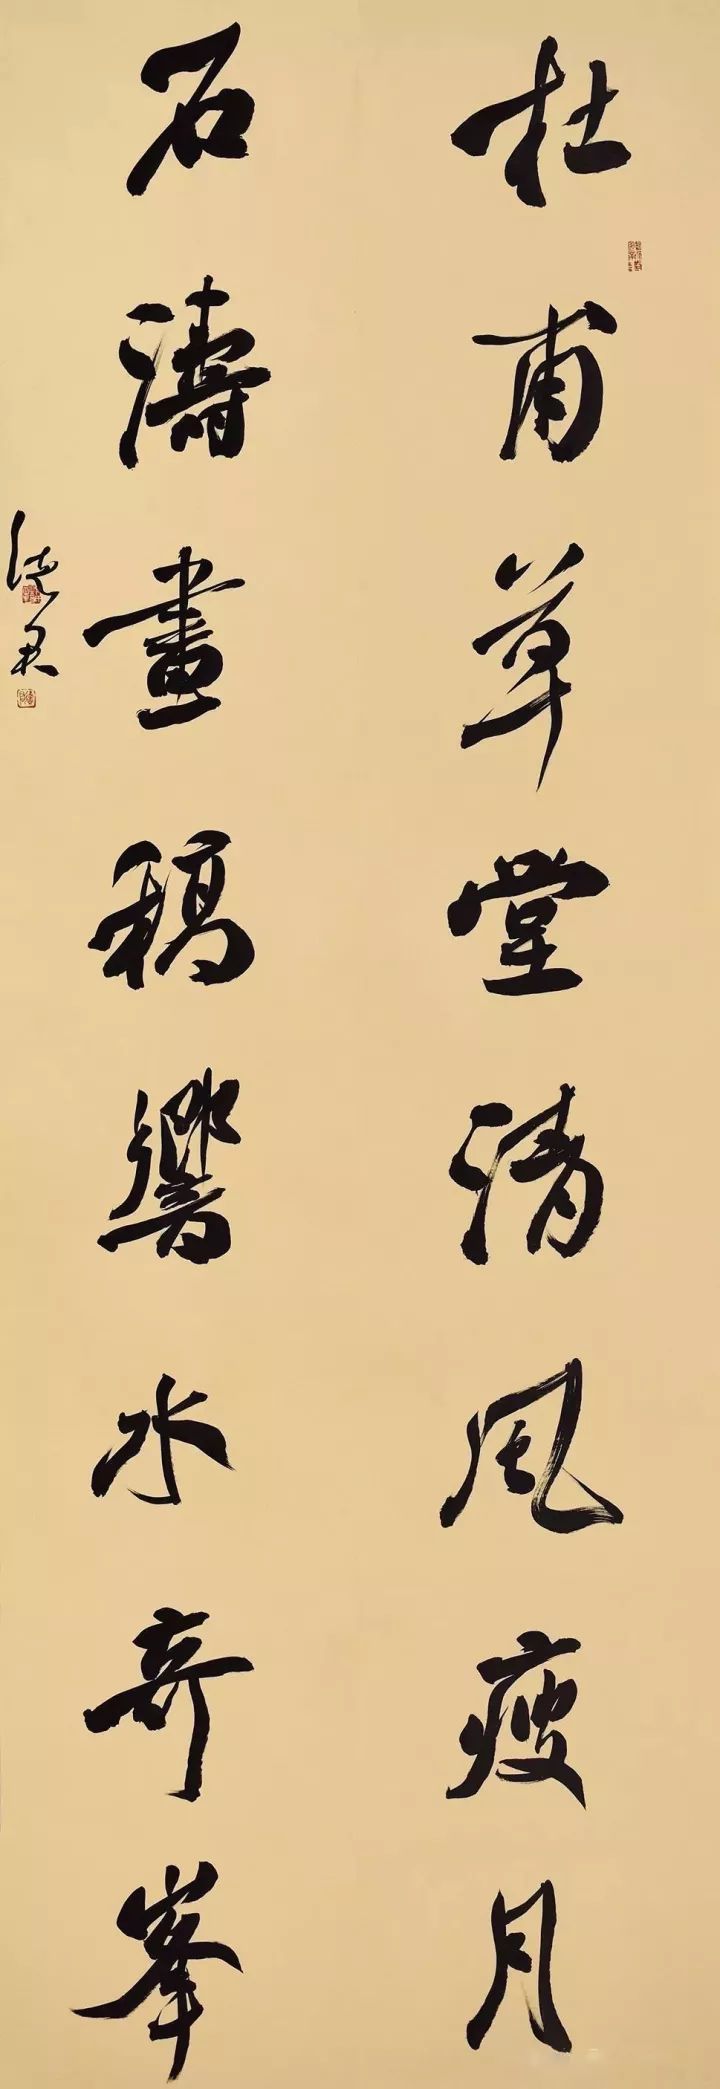 杜甫草堂清風瘦月
石濤畫稿響水奇峯